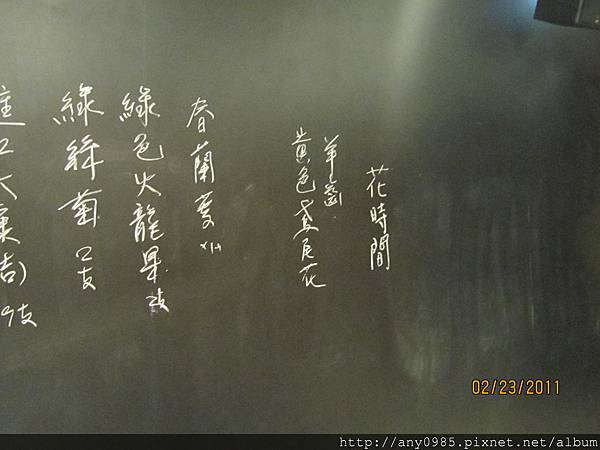 花時間
羊齒
黃色鳶尾花
春蘭葉 x14
綠色火龍果 2支
綠絳菊 2支
02/23/2011
http://any0985.pixnet.net/album